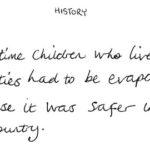 HISTORY
time children who live
ties had to be evapo
se it was safer in
ounty.